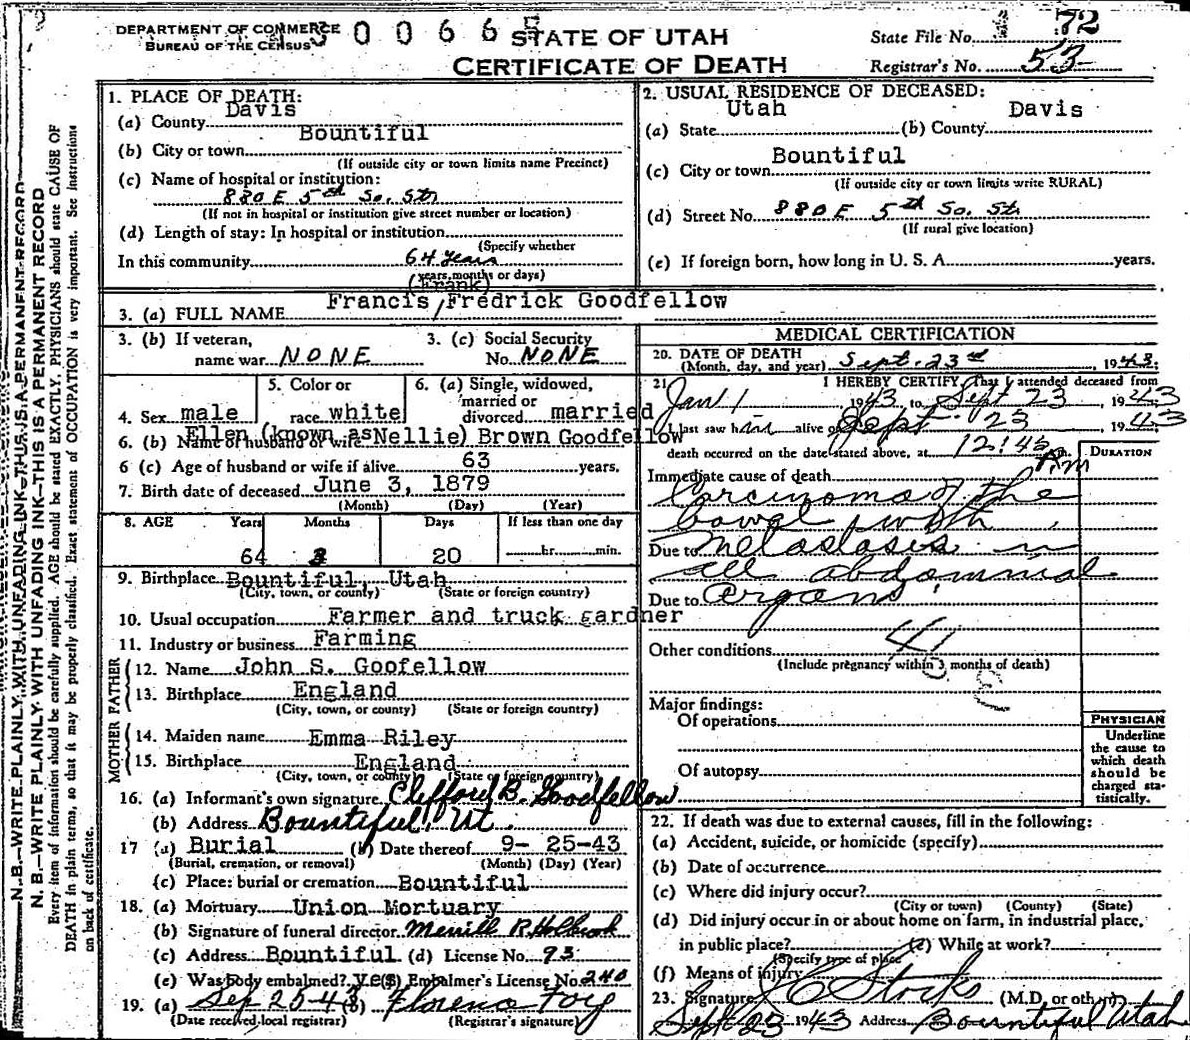 DEPARTMENT OF COMMERCE
BUREAU OF THE CENSUS
STATE OF UTAH
CERTIFICATE OF DEATH
State File No. 72
Registrar's No. 53
1. PLACE OF DEATH:
(a) County Davis
(b) City or town Bountiful
(If outside city or town limits name Precinct)
(c) Name of hospital or institution:
880 E 5th So. St.
(If not in hospital or institution give street number or location)
(d) Length of stay: In hospital or institution
(Specify whether
In this community 64 years
years, months or days)
2. USUAL RESIDENCE OF DECEASED:
(a) State Utah (b) County Davis
(c) City or town Bountiful
(If outside city or town limits write RURAL)
(d) Street No. 880 E 5th So. St
(If rural give location)
(e) If foreign born, how long in U. S. A. years.
(Frank)
3. (a) FULL NAME Francis/Fredrick Goodfellow
3. (b) If veteran, name war NONE
3. (c) Social Security No. NONE
4. Sex male
5. Color or race white
6. (a) Single, widowed, married or divorced married
6. (b) Name of husband or wife Ellen (known as Nellie) Brown Goodfellow
6 (c) Age of husband or wife if alive 63 years.
7. Birth date of deceased June 3, 1879
(Month) (Day) (Year)
8. AGE Years Months Days If less than one day
64 3 20 hr. min.
9. Birthplace Bountiful, Utah
(City, town, or county) (State or foreign country)
10. Usual occupation Farmer and truck gardner
11. Industry or business Farming
FATHER
12. Name John S. Goofellow
13. Birthplace England
(City, town, or county) (State or foreign country)
MOTHER
14. Maiden name Emma Riley
15. Birthplace England
(City, town, or county) (State or foreign country)
16. (a) Informant's own signature Clifford B. Goodfellow
(b) Address Bountiful, Ut.
17 (a) Burial (b) Date thereof 9- 25-43
(Burial, cremation, or removal) (Month) (Day) (Year)
(c) Place: burial or cremation Bountiful
18. (a) Mortuary Union Mortuary
(b) Signature of funeral director Merrill R. Holbrook
(c) Address Bountiful (d) License No. 93
(e) Was body embalmed? Yes (f) Embalmer's License No. 240
19. (a) Sep 25-43 (b)
(Date received local registrar) (Registrar's signature)
MEDICAL CERTIFICATION
20. DATE OF DEATH
(Month, day, and year) Sept. 23rd, 1943
21. I HEREBY CERTIFY, That I attended deceased from
Jan 1 1943, to Sept 23, 1943
I last saw him alive on Sept 23, 1943
death occurred on the date stated above, at 12:45 m.
DURATION
Immediate cause of death
Carcinoma of the
bowel with
Due to metastasis in
all abdominal
Due to organs
Other conditions
(Include pregnancy within 3 months of death)
Major findings:
Of operations
Of autopsy
PHYSICIAN
Underline
the cause to
which death
should be
charged sta-
tistically.
22. If death was due to external causes, fill in the following:
(a) Accident, suicide, or homicide (specify)
(b) Date of occurrence
(c) Where did injury occur?
(City or town) (County) (State)
(d) Did injury occur in or about home on farm, in industrial place,
in public place? (e) While at work?
(Specify type of place
(f) Means of injury
23. Signature Stocks (M.D. or other)
Sept 23 1943 Address Bountiful Utah
N. B.—WRITE PLAINLY WITH UNFADING INK—THIS IS A PERMANENT RECORD
Every item of information should be carefully supplied. AGE should be stated EXACTLY. PHYSICIANS should state CAUSE OF
DEATH in plain terms, so that it may be properly classified. Exact statement of OCCUPATION is very important. See instructions
on back of certificate.